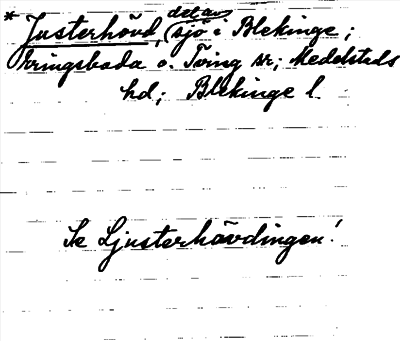 * Justerhövd, (del av) sjö i Blekinge;
kringsboda o. Tving sr; Medelsteds
hd; Blekinge l.
Se Ljusterhövdingen!